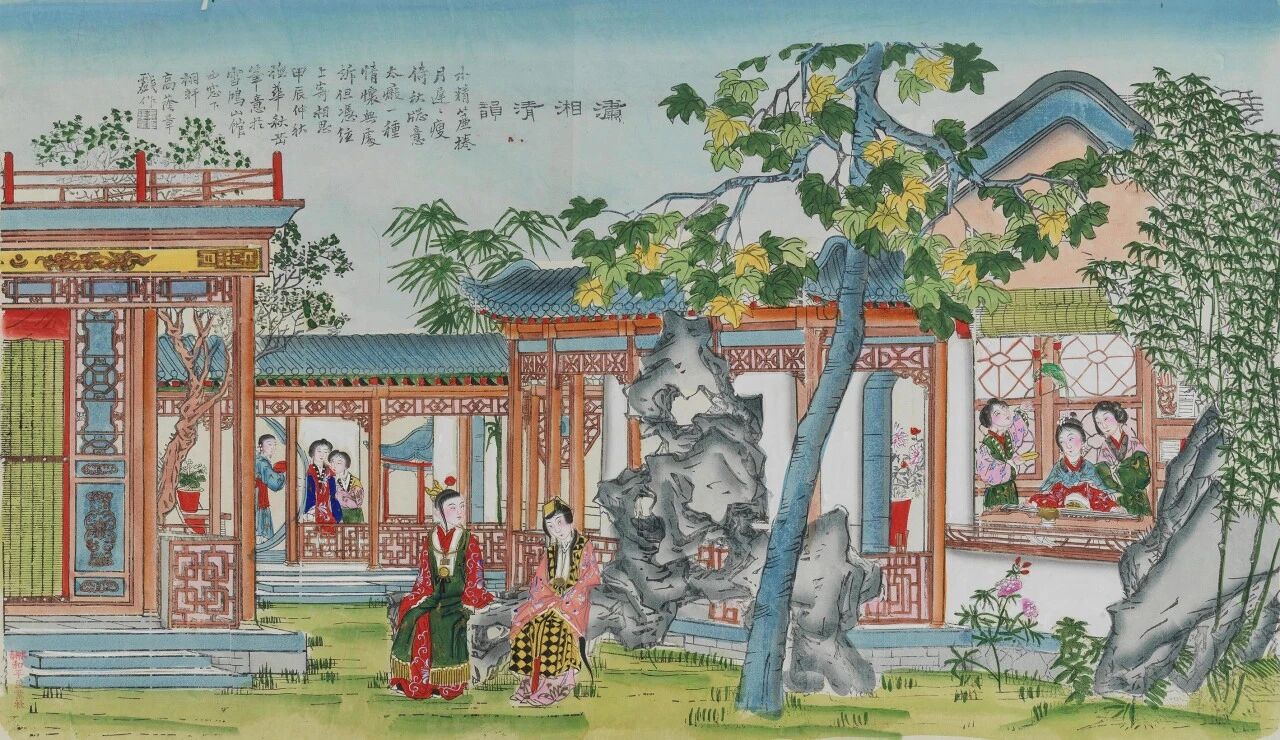 瀟湘清韻
水精簾捲
月遲々瘦
倚秋牕意
太癡一種
情懷無處
訴但憑絃
上寄相思
甲辰仲秋
擬華秋岳
筆意於
雪鴻山館
西窗下
桐軒
高蔭章
戲作